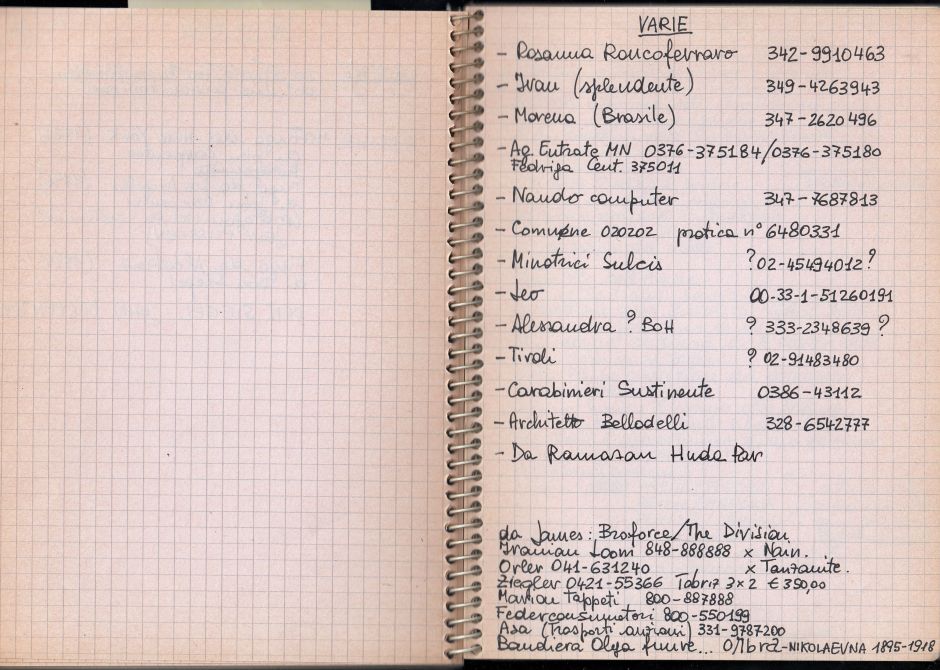 VARIE
- Rosanna Roncoferraro 342-9910463
- Ivan (splendente) 349-4263943
- Morena (Brasile) 347-2620496
- Ag Entrate MN 0376-375184/0376-375180
Fedriga Cent. 375011
- Nando computer 347-7687813
- Comune 020202 pratica n° 6480331
- Minotrici Sulcis ?02-45494012?
- Leo 00-33-1-51260191
- Alessandra ? BOH ? 333-2348639 ?
- Tivoli ? 02-91483480
- Carabinieri Sustinente 0386-43112
- Architetto Bellodelli 328-6542777
- Da Ramasan Huda Par
da James: Broforce/The Division
Iranian Loom 848-888888 x Nain.
Orler 041-631240 x Tanzanite.
Ziegler 0421-55366 Tabriz 3x2 € 350,00
Marion Tappeti 800-887888
Federconsumatori 800-550199
Asa (trasporti anziani) 331-9787200
Bandiera Olga funre... -NIKOLAEVNA 1895-1918